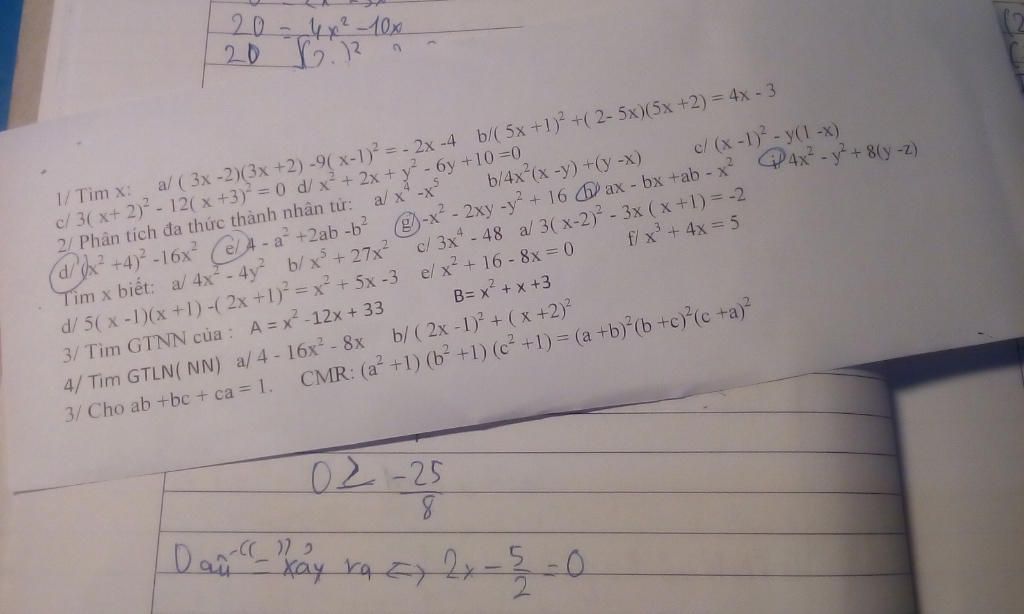 20 = 4x² -10x
20
1/ Tìm x: a/ ( 3x -2)(3x +2) -9( x-1)² = - 2x -4 b/( 5x +1)² +( 2- 5x)(5x +2) = 4x - 3
c/ 3( x+ 2)² - 12( x +3)² = 0 d/ x² + 2x + y² - 6y +10 =0
2/ Phân tích đa thức thành nhân tử: a/ x⁴ -x⁵ b/4x²(x -y) +(y -x) c/ (x -1)² - y(1 -x)
d/ (x² +4)² -16x² e/ 4 - a² +2ab -b² g/ -x² - 2xy -y² + 16 h/ ax - bx +ab - x² i/ 4x² - y² + 8(y -z)
Tìm x biết: a/ 4x² - 4y² b/ x⁵ + 27x² c/ 3x⁴ - 48 a/ 3( x-2)² - 3x ( x +1) = -2
d/ 5( x -1)(x +1) -( 2x +1)² = x² + 5x -3 e/ x² + 16 - 8x = 0 f/ x³ + 4x = 5
3/ Tìm GTNN của : A = x² -12x + 33 B= x² + x +3
4/ Tìm GTLN( NN) a/ 4 - 16x² - 8x b/ ( 2x -1)² + ( x +2)²
3/ Cho ab +bc + ca = 1. CMR: (a² +1) (b² +1) (c² +1) = (a +b)²(b +c)²(c +a)²
0 ≥ -25/8
Dấu "=" xảy ra <=> 2x - 5/2 = 0